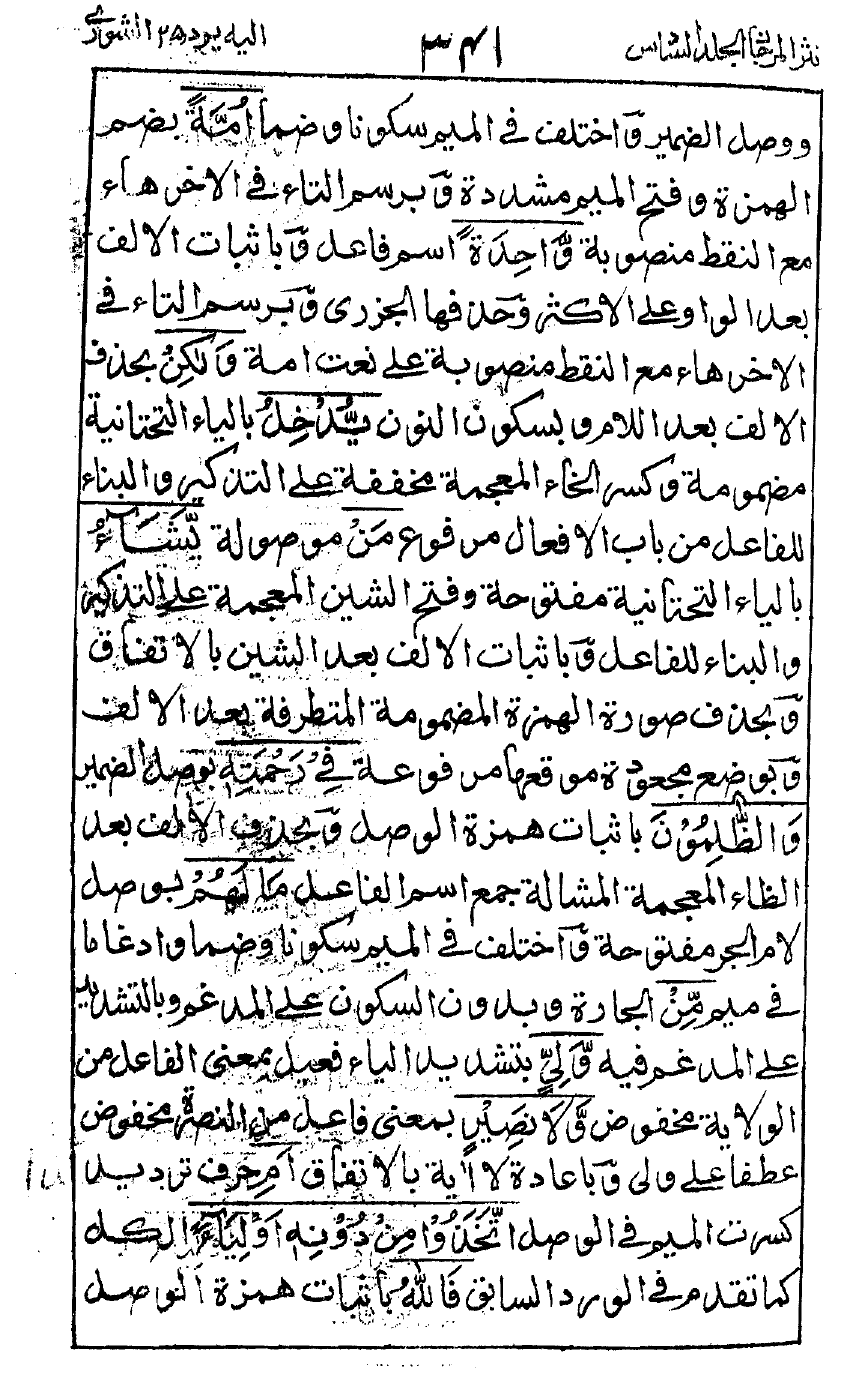 نثر المرجان الجلد السادس ٣٤١ اليه يرد ٢٥ الشورى
ووصل الضمير وَاختلف في الميم سكونا وضما أُمَّةً بضم
الهمزة وفتح الميم مشددة وَبرسم التاء في الاخر هاء
مع النقط منصوبة وَّاحِدَةً اسم فاعل وَباثبات الالف
بعد الواو على الاكثر وَحذفها الجزرى وَبرسم التاء في
الاخر هاء مع النقط منصوبة على نعت امة وَلٰكِنْ بحذف
الالف بعد اللام وبسكون النون يُّدْخِلُ بالياء التحتانية
مضمومة وكسر الخاء المعجمة مخففة على التذكير والبناء
للفاعل من باب الافعال مرفوع مَنْ موصولة يَّشَآءُ
بالياء التحتانية مفتوحة وفتح الشين المعجمة على التذكير
والبناء للفاعل وَباثبات الالف بعد الشين بالاتفاق
وَبحذف صورة الهمزة المضمومة المتطرفة بعد الالف
وَبوضع مجعودة موقعها مرفوعة فِيْ رَحْمَتِهٖ بوصل الضمير
وَالظّٰلِمُوْنَ باثبات همزة الوصل وَبحذف الالف بعد
الظاء المعجمة المشالة جمع اسم الفاعل مَا لَهُمْ بوصل
لام الجر مفتوحة وَاختلف في الميم سكونا وضما وادغاما
في ميم مِّنْ الجارة وبدون السكون على المدغم وبالتشديد
على المدغم فيه وَّلِيٍّ بتشديد الياء فعيل بمعنى الفاعل من
الولاية مخفوض وَّلَا نَصِيْرٍ بمعنى فاعل من النصرة مخفوض
عطفا على ولى وَباعادة لا اٰية بالاتفاق اَمِ حرف ترديد
كسرت الميم في الوصل اتَّخَذُوْا مِنْ دُوْنِهٖ اَوْلِيَآءَ الكل
كما تقدم في الورد السابق فَاللّٰهُ باثبات همزة الوصل